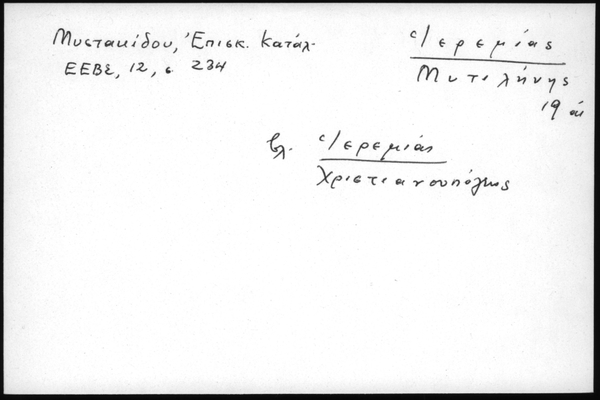 Μυστακίδου, Ἐπισκ. Κατάλ.
ΕΕΒΣ, 12, σ. 234
Ἱερεμίας
Μυτιλήνης
19 αἰ
βλ. Ἱερεμίας
Χριστιανουπόλεως